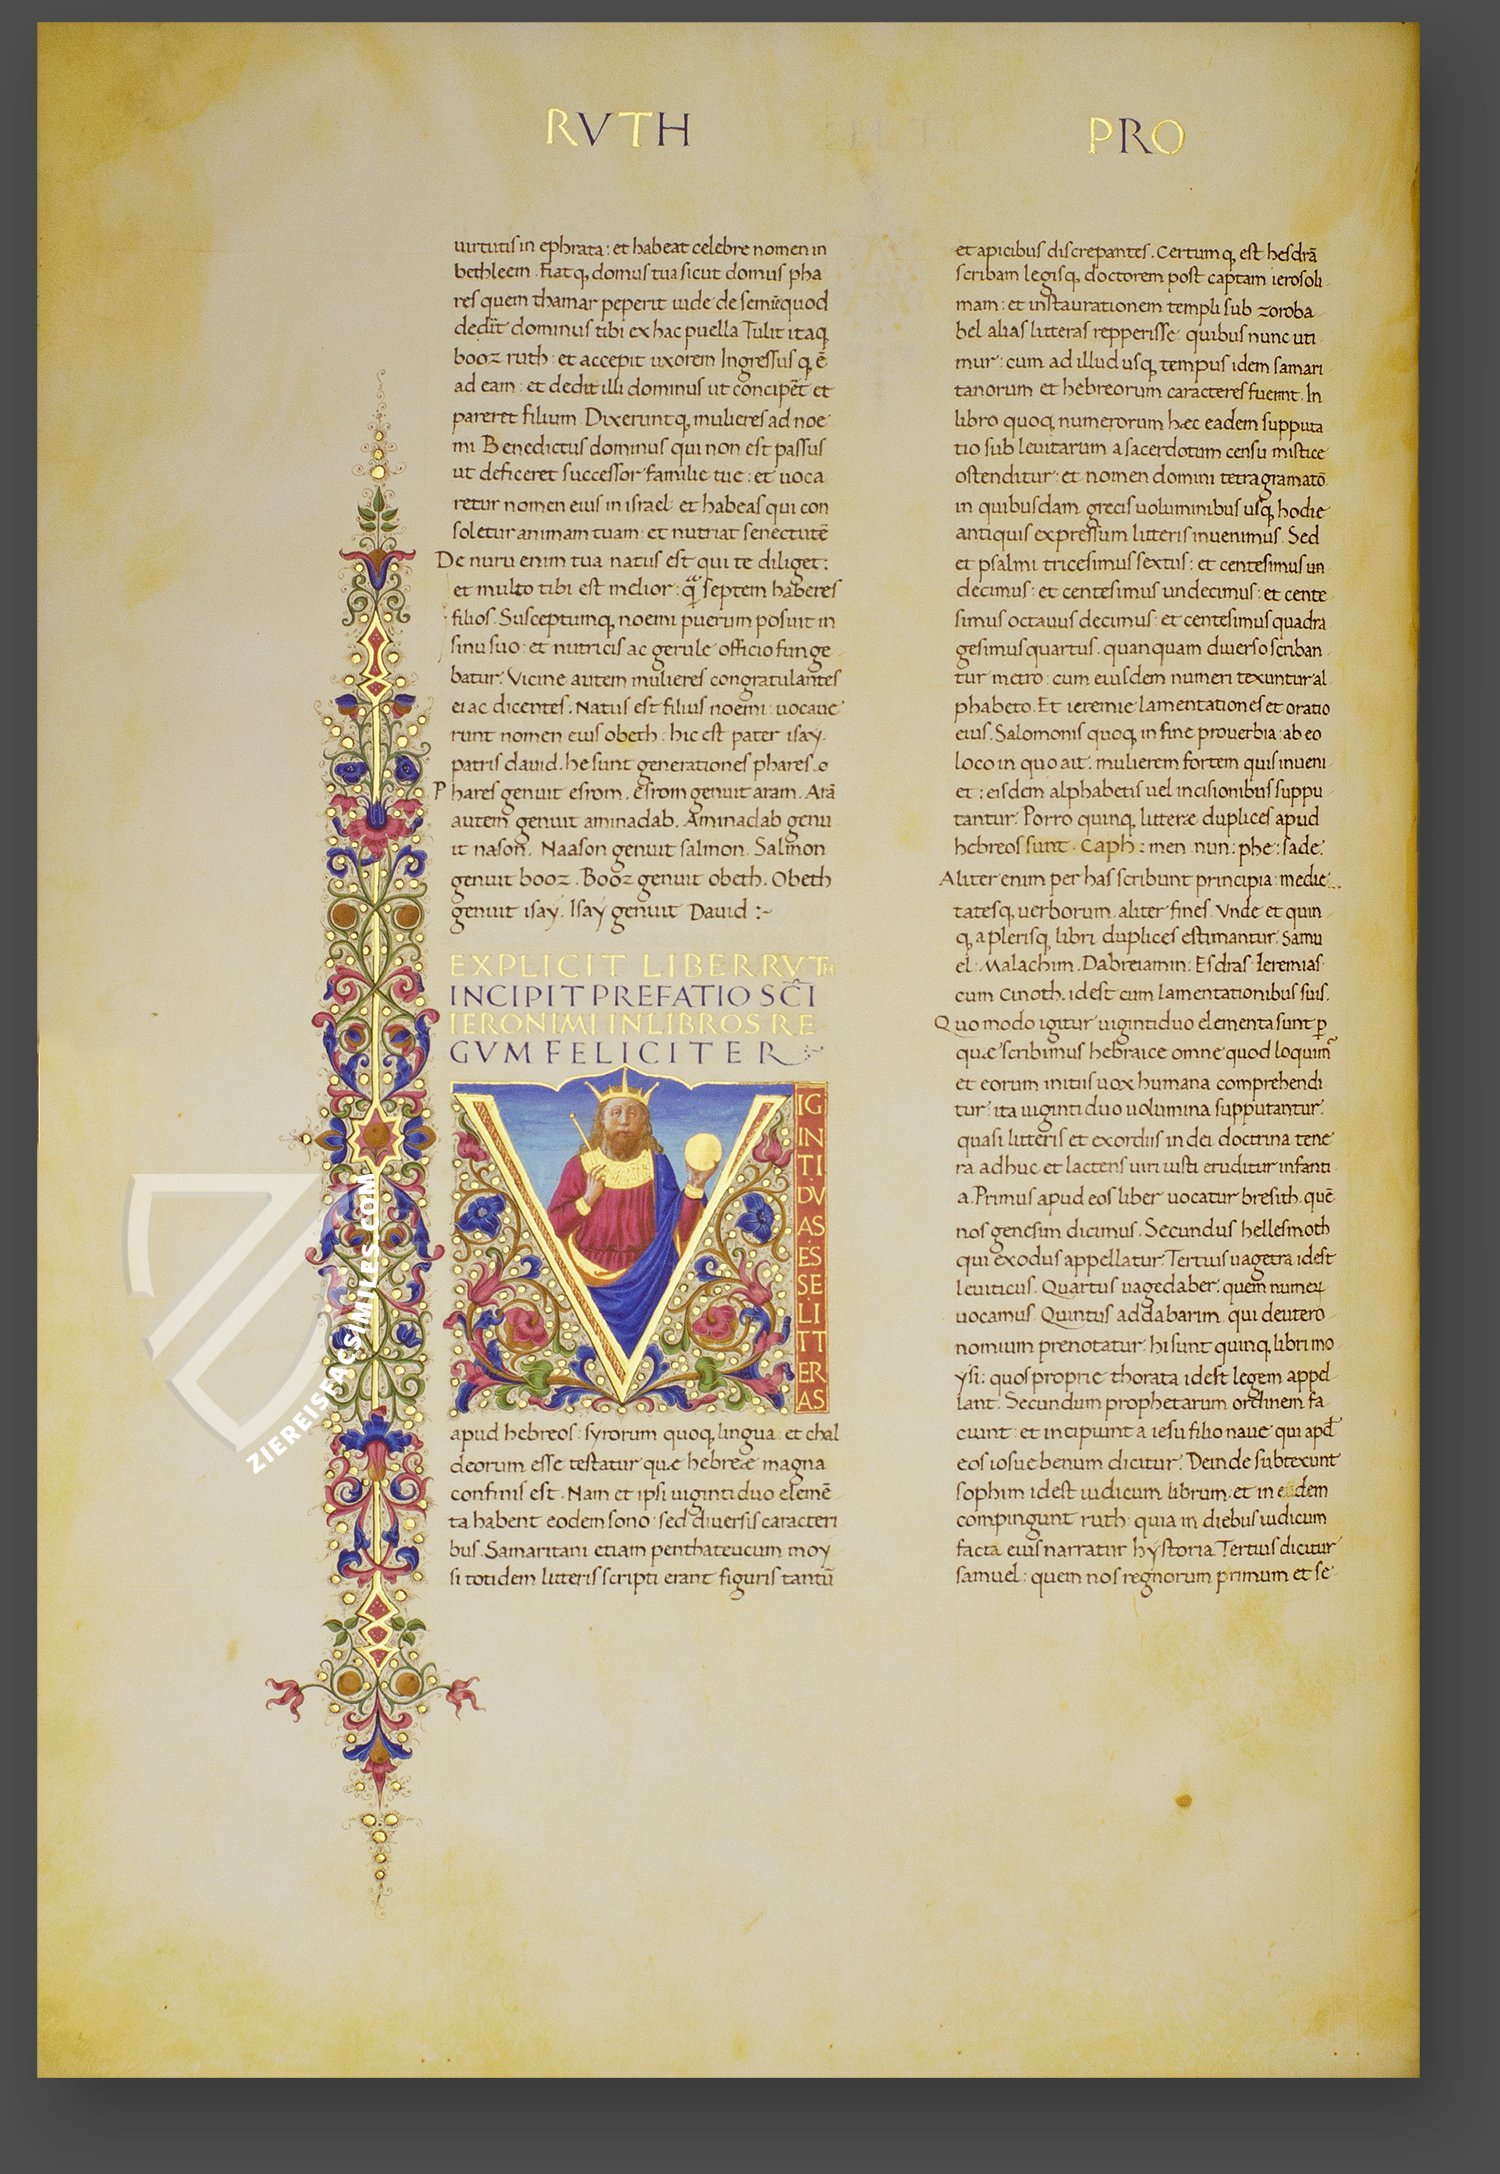 RVTH
uirtutis in ephrata: et habeat celebre nomen in
bethleem. Fiatq, domus tua sicut domus pha
res quem thamar peperit iude de semine quod
dedit dominus tibi ex hac puella. Tulit itaq,
booz ruth: et accepit uxorem Ingressusq, ē
ad eam: et dedit illi dominus ut conciperet et
pareret filium. Dixeruntq, mulieres ad noe
mi. Benedictus dominus qui non est passus
ut deficeret successor familie tue: et uoca
retur nomen eius in israel: et habeas qui con
soletur animam tuam: et nutriat senectutē
De nuru enim tua natus est qui te diliget:
et multo tibi est melior: q̄ septem haberes
filios. Susceptumq, noemi puerum posuit in
sinu suo: et nutricis ac gerule officio funge
batur. Vicine autem mulieres congratulantes
ei ac dicentes. Natus est filius noemi: uocaue
runt nomen eius obeth: hic est pater isay.
patris dauid. he sunt generationes phares.
Phares genuit esrom. esrom genuit aram. Arā
autem genuit aminadab. Aminadab genu
it nason. Naason genuit salmon. Salmon
genuit booz. Booz genuit obeth. Obeth
genuit isay. Isay genuit Dauid :~
EXPLICIT LIBER RVTH
INCIPIT PREFATIO SCI
IERONIMI IN LIBROS RE
GVM FELICITER
VIG
IN
TI
DV
AS
ES
SE
LI
TT
ER
AS
apud hebreos: syrorum quoq, lingua: et chal
deorum esse testatur quæ hebreæ magna
confinis est. Nam et ipsi uiginti duo elemē
ta habent eodem sono: sed diuersis caracteri
bus. Samaritani etiam penthateucum moy
si totidem litteris scripti erant figuris tantū
PRO
et apicibus discrepantes. Certumq, est hesdrā
scribam legisq, doctorem post captam ierosoli
mam: et instaurationem templi sub zoroba
bel alias litteras repperisse: quibus nunc uti
mur: cum ad illud usq, tempus idem samari
tanorum et hebreorum caracteres fuerint. In
libro quoq, numerorum hæc eadem supputa
tio sub leuitarum a sacerdotum censu mistice
ostenditur: et nomen domini tetragramatō
in quibusdam grecis uoluminibus usq, hodie
antiquis expressum litteris inuenimus. Sed
et psalmi tricesimus sextus: et centesimus un
decimus: et centesimus undecimus: et cente
simus octauus decimus: et centesimus quadra
gesimus quartus. quanquam diuerso scriban
tur metro: cum eiusdem numeri texuntur al
phabeto. Et ieremie lamentationes et oratio
eius. Salomonis quoq, in fine prouerbia: ab eo
loco in quo ait: mulierem fortem quis inueni
et: eisdem alphabetis uel incisionibus suppu
tantur. Porro quinq, litteræ duplices apud
hebreos sunt. Caph: men nun: phe: sade:
Aliter enim per has scribunt principia: medie
tatesq, uerborum. aliter fines. Vnde et quin
q, a plerisq, libri duplices estimantur. Samu
el. Malachim. Dabreiamin: Esdras. Ieremias
cum cinoth. idest cum lamentationibus suis.
Quomodo igitur uiginti duo elementa sunt p
quæ scribimus hebraice omne quod loquimur
et eorum initiis uox humana comprehendi
tur: ita uiginti duo uolumina supputantur.
quasi litteris et exordiis in dei doctrina tene
ra adhuc et lactens uiri iusti eruditur infanti
a. Primus apud eos liber uocatur bresith. quē
nos genesim dicimus. Secundus hellesmoth
qui exodus appellatur. Tertius uagetra idest
leuiticus. Quartus uagedaber. quem numeꝝ
uocamus. Quintus addabarim. qui deutero
nomium prenotatur: hi sunt quinq, libri mo
ysi: quos proprie thorata idest legem appel
lant. Secundum prophetarum ordinem fa
ciunt: et incipiunt a iesu filio naue: qui apd
eos iosue benum dicitur. Deinde subtexunt
sophim idest iudicum librum. et in eodem
compingunt ruth: quia in diebus iudicum
facta eius narratur hystoria. Tertius dicitur
samuel: quem nos regnorum primum et se
ZIEREISFACSIMILES.COM